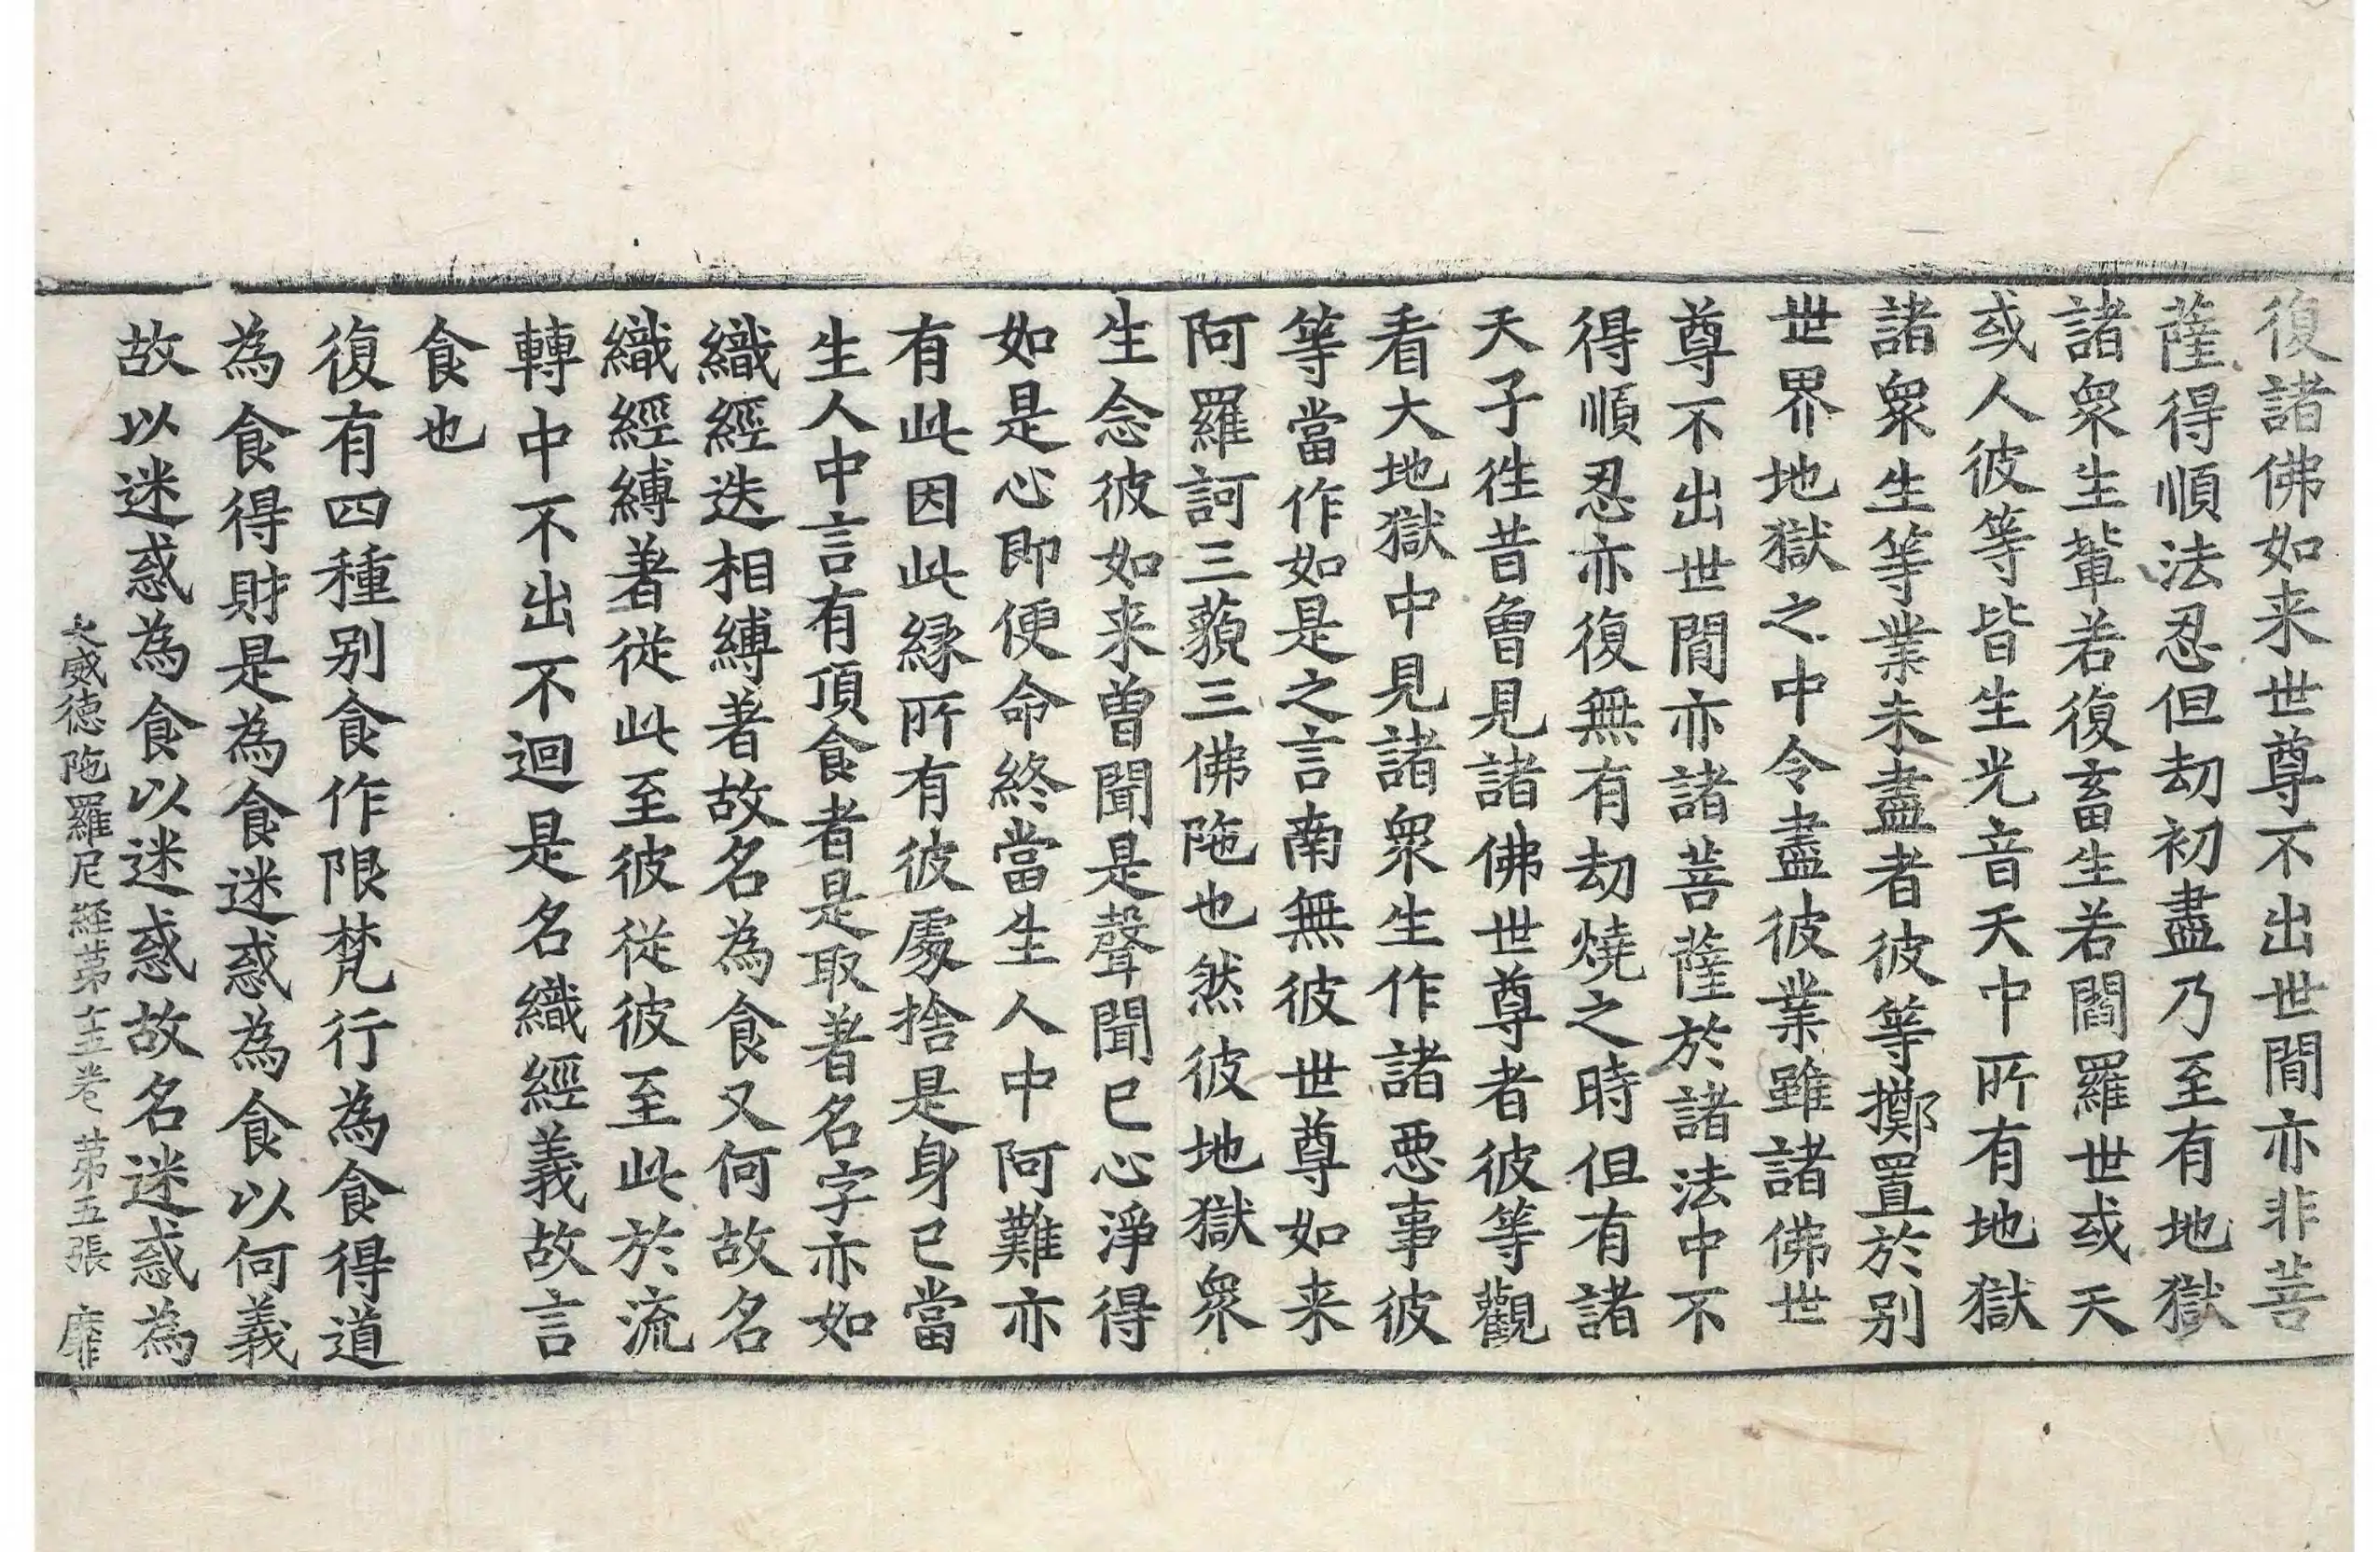 復諸佛如来世尊不出世間亦非菩
薩得順法忍但劫初盡乃至有地獄
諸衆生輩若復畜生若閻羅世或天
或人彼等皆生光音天中所有地獄
諸衆生等業未盡者彼等擲置於别
世界地獄之中令盡彼業雖諸佛世
尊不出世間亦諸菩薩於諸法中不
得順忍亦復無有劫燒之時但有諸
天子徃昔曾見諸佛世尊者彼等觀
看大地獄中見諸衆生作諸悪事彼
等當作如是之言南無彼世尊如来
阿羅訶三藐三佛陁也然彼地獄衆
生念彼如来曽聞是聲聞已心淨得
如是心即便命終當生人中阿難亦
有此因此縁所有彼處捨是身已當
生人中言有頂食者是取著名字亦如
織經迭相縛著故名為食又何故名
織經縛著従此至彼従彼至此於流
轉中不出不迴是名織經義故言
食也
復有四種别食作限梵行為食得道
為食得財是為食迷惑為食以何義
故以迷惑為食以迷惑故名迷惑為
大威德陁羅尼經第卷 第五張